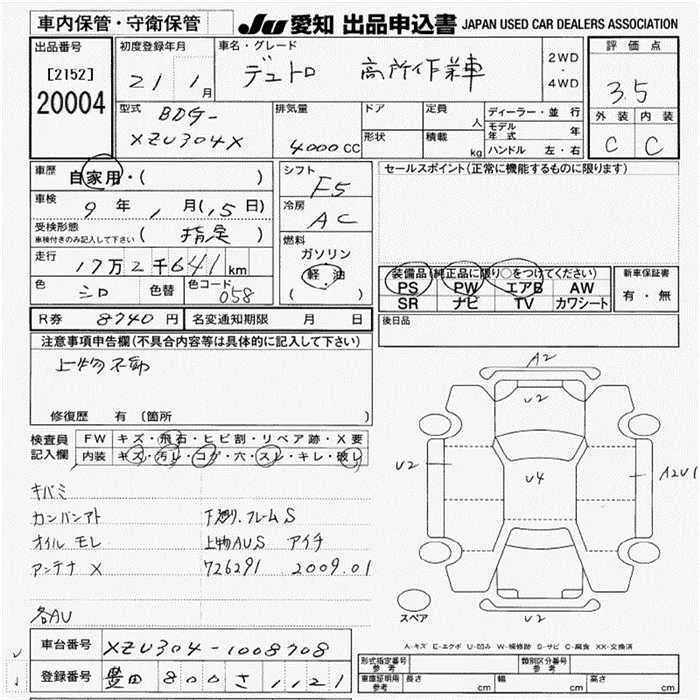 車内保管・守衛保管 JU 愛知 出品申込書 JAPAN USED CAR DEALERS ASSOCIATION
出品番号 初度登録年月 車名・グレード 評価点
[2152] 21 1月 デュトロ 高所作業車 2WD・4WD 3.5
20004
型式 BDG- 排気量 ドア 定員 人 ディーラー・並行 外装 内装
XZU304X 4000CC 形状 積載 kg モデル年式 年 C C
ハンドル 左・右
車歴 自家用・( ) シフト F5 セールスポイント(正常に機能するものに限ります)
車検 9年1月(15日) 冷房 AC
受検形態 車検付きのみ記入して下さい (指定) 燃料
走行 17万2千641km ガソリン
軽油
( )
装備品(純正品に限り○をつけてください) 新車保証書
PS PW エアB AW 有・無
SR ナビ TV カワシート
色 シロ 色替 色コード 058
R券 8740円 名変通知期限 月 日 後日品
注意事項申告欄(不具合内容等は具体的に記入して下さい)
上物不動
修復歴 有 (箇所
検査員記入欄 FW キズ・飛石・ヒビ割・リペア跡・X要
内装 キズ・汚レ・コゲ・穴・スレ・キレ・破レ
キバミ
カンバンアト 下廻リ.フレームS
オイルモレ 上物AUS アイチ
アンテナX 726291 2009.01
各AU
A2
U2
U2 U4 A2U1
U2
スペア
A-キズ E-エクボ U-凹み W-補修跡 S-サビ C-腐食 XX-交換済
車台番号 XZU304-1008708
登録番号 豊田 800 さ 1121
形式指定番号 参考 類別区分番号 参考
車庫証明用 参考 長さ cm 幅 cm 高さ cm